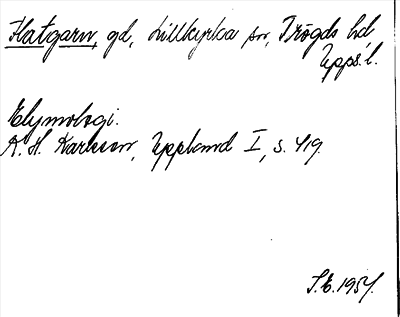 Katgarn, gd, Lillkyrka sn, Trögds hd
Upps. l.
Etymologi.
K. H. Karlsson, Uppland I, s. 419.
S.E. 1954.